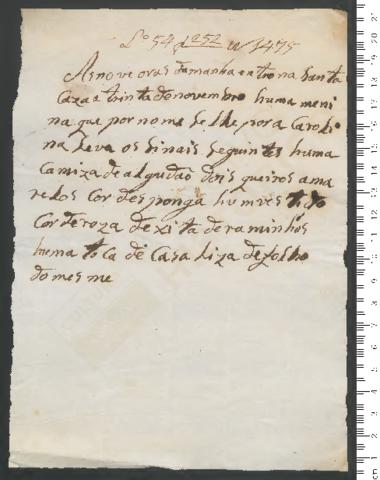 Lo 54 fo 52 N 1475
As nove oras da manha entro na Santa
Caza a trinta do novembro huma meni
na que por nome se lhe pora Caroli
na leva os Sinais Seguintes huma
Camiza de algudão dois queiros ama
relos Cor de sponga hum ves tido
Cor de roza de xita de raminhos
huma toCa de Casa Liza de folho
do mes me